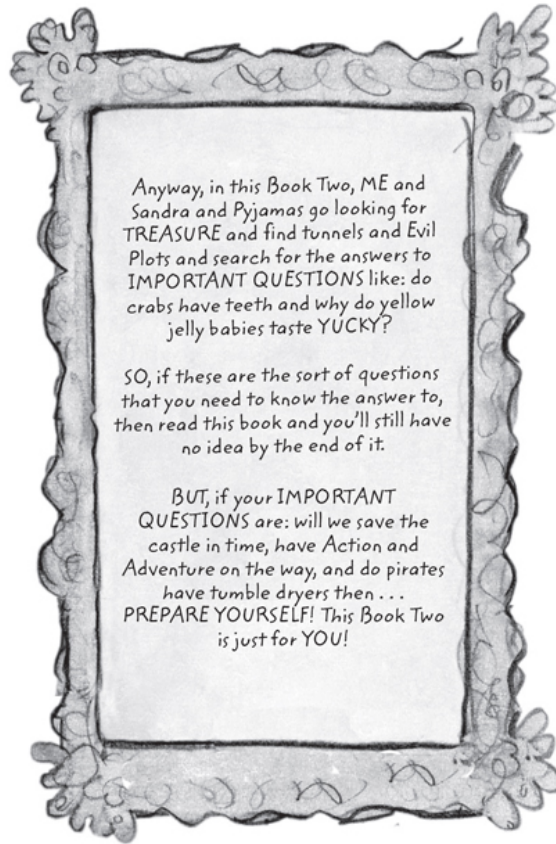 Anyway, in this Book Two, ME and
Sandra and Pyjamas go looking for
TREASURE and find tunnels and Evil
Plots and search for the answers to
IMPORTANT QUESTIONS like: do
crabs have teeth and why do yellow
jelly babies taste YUCKY?
SO, if these are the sort of questions
that you need to know the answer to,
then read this book and you'll still have
no idea by the end of it.
BUT, if your IMPORTANT
QUESTIONS are: will we save the
castle in time, have Action and
Adventure on the way, and do pirates
have tumble dryers then . . .
PREPARE YOURSELF! This Book Two
is just for YOU!